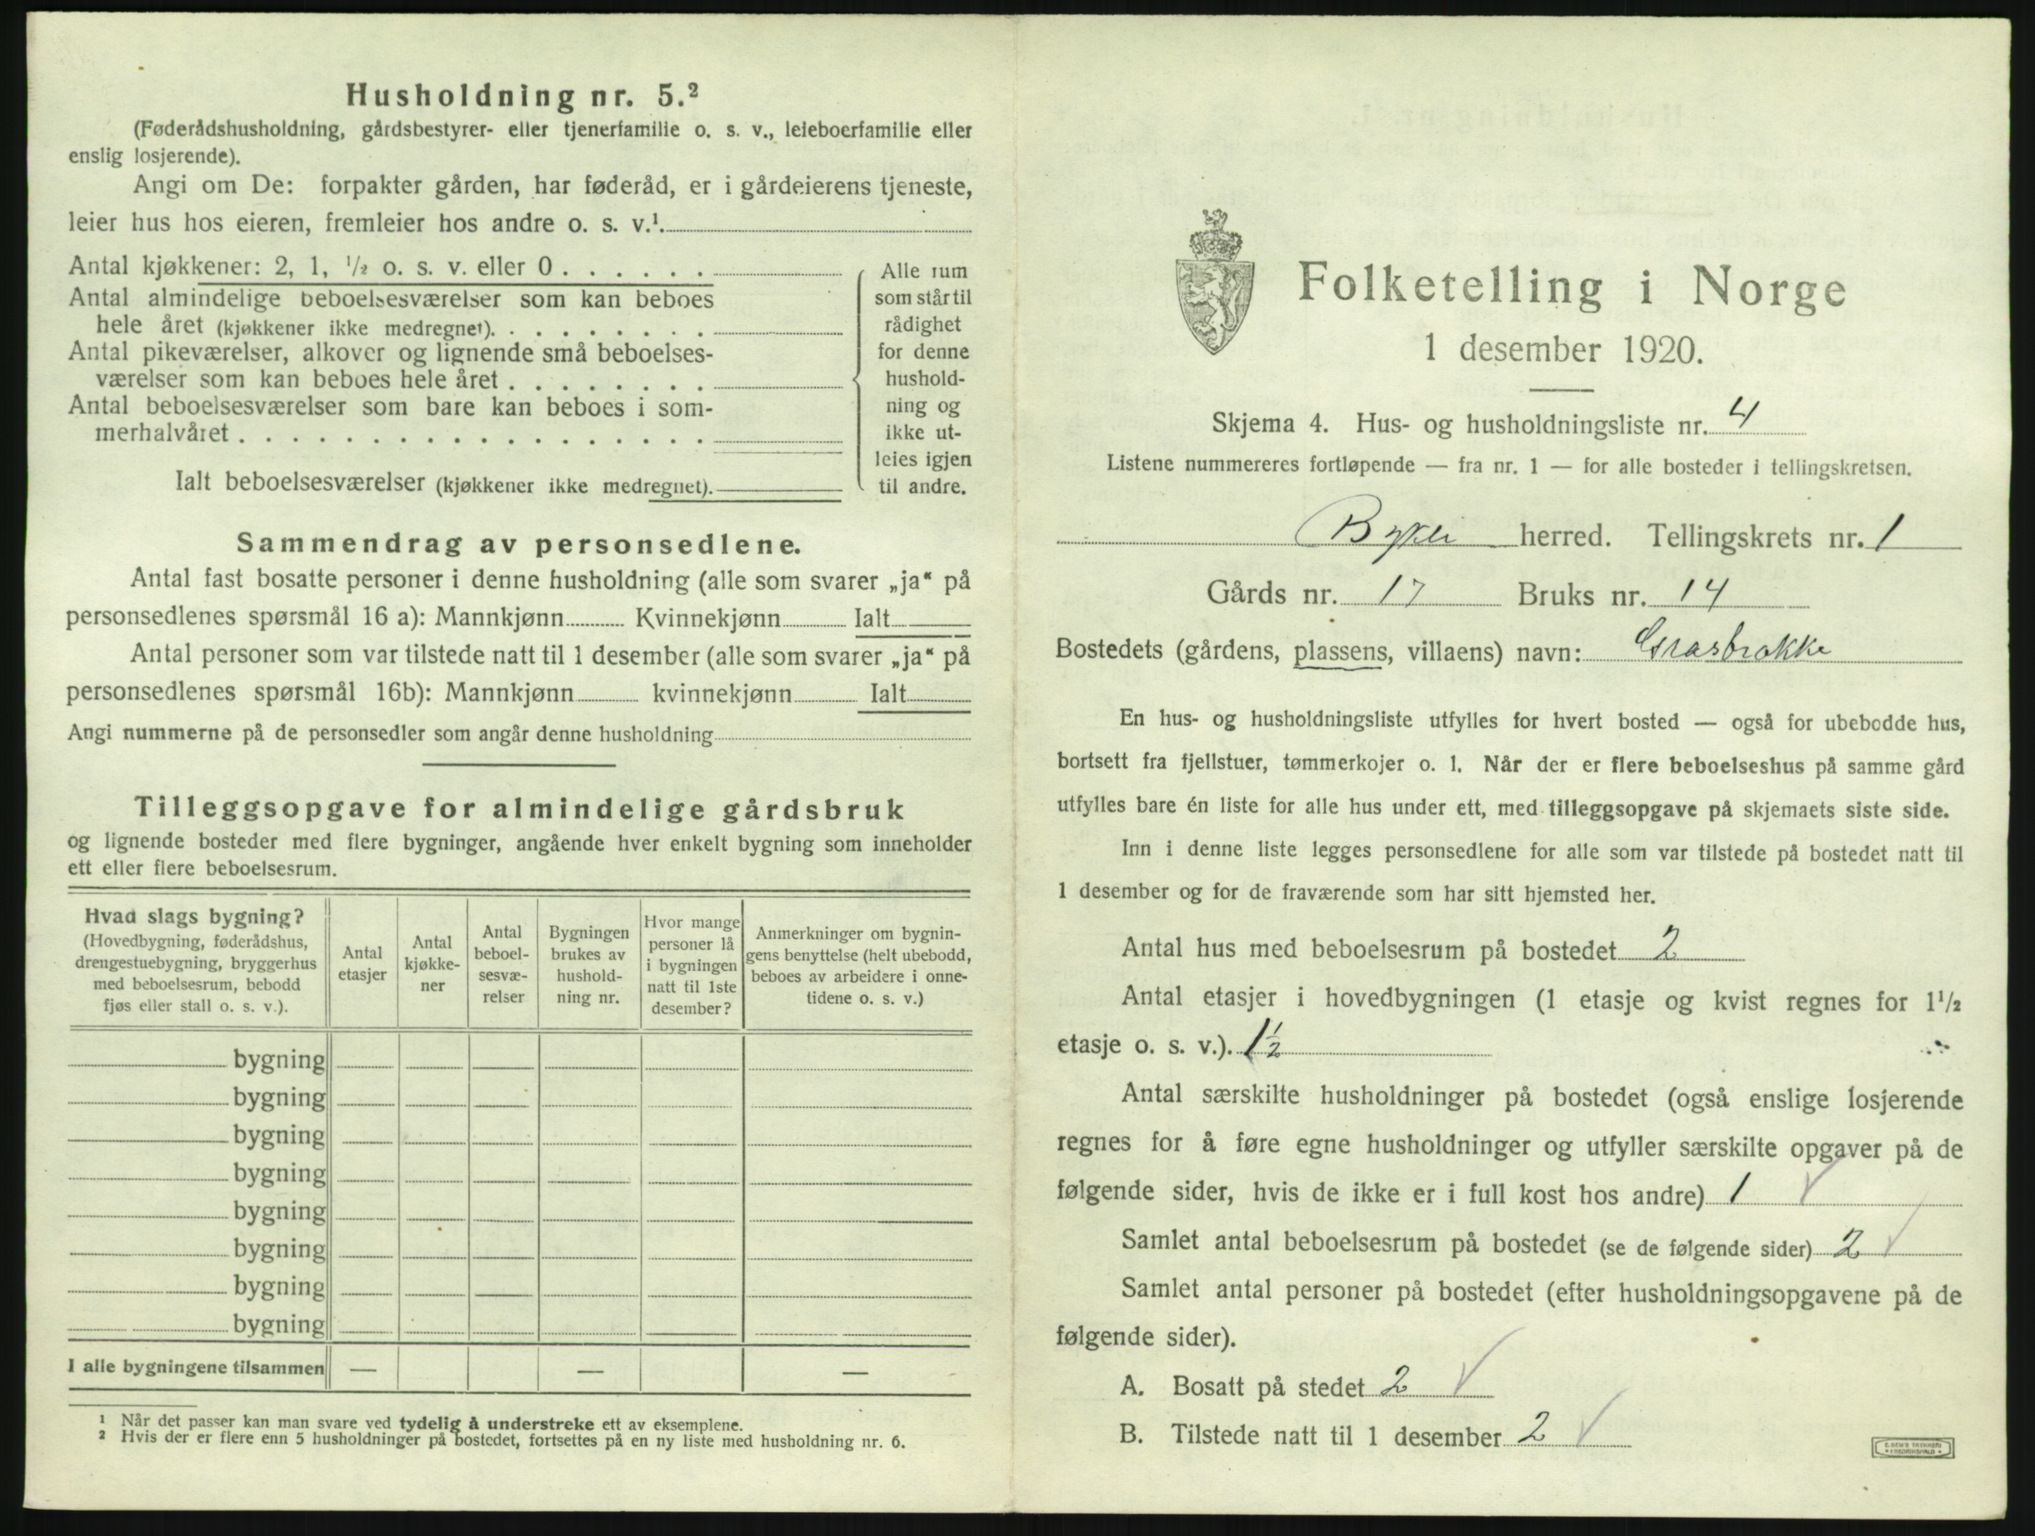 Husholdning nr. 5.²
(Føderådshusholdning, gårdsbestyrer- eller tjenerfamilie o. s. v., leieboerfamilie eller
enslig losjerende).
Angi om De: forpakter gården, har føderåd, er i gårdeierens tjeneste,
leier hus hos eieren, fremleier hos andre o. s. v.¹
Antal kjøkkener: 2, 1, ½ o. s. v. eller 0
Antal almindelige beboelsesværelser som kan beboes
hele året (kjøkkener ikke medregnet)
Antal pikeværelser, alkover og lignende små beboelses-
værelser som kan beboes hele året
Antal beboelsesværelser som bare kan beboes i som-
merhalvåret
Ialt beboelsesværelser (kjøkkener ikke medregnet)
Alle rum
som står til
rådighet
for denne
hushold-
ning og
ikke ut-
leies igjen
til andre.
Sammendrag av personsedlene.
Antal fast bosatte personer i denne husholdning (alle som svarer „ja“ på
personsedlenes spørsmål 16 a): Mannkjønn Kvinnekjønn Ialt
Antal personer som var tilstede natt til 1 desember (alle som svarer „ja“ på
personsedlenes spørsmål 16b): Mannkjønn kvinnekjønn Ialt
Angi nummerne på de personsedler som angår denne husholdning
Tilleggsopgave for almindelige gårdsbruk
og lignende bosteder med flere bygninger, angående hver enkelt bygning som inneholder
ett eller flere beboelsesrum.
Hvad slags bygning?
(Hovedbygning, føderådshus,
drengestuebygning, bryggerhus
med beboelsesrum, bebodd
fjøs eller stall o. s. v.).
Antal
etasjer
Antal
kjøkke-
ner
Antal
beboel-
sesvæ-
relser
Bygningen
brukes av
hushold-
ning nr.
Hvor mange
personer lå
i bygningen
natt til 1ste
desember?
Anmerkninger om bygnin-
gens benyttelse (helt ubebodd,
beboes av arbeidere i onne-
tidene o. s. v.)
bygning
bygning
bygning
bygning
bygning
bygning
bygning
bygning
I alle bygningene tilsammen — — —
¹ Når det passer kan man svare ved tydelig å understreke ett av eksemplene.
² Hvis der er flere enn 5 husholdninger på bostedet, fortsettes på en ny liste med husholdning nr. 6.
Folketelling i Norge
1 desember 1920.
Skjema 4. Hus- og husholdningsliste nr. 4
Listene nummereres fortløpende — fra nr. 1 — for alle bosteder i tellingskretsen.
Bykle herred. Tellingskrets nr. 1
Gårds nr. 17 Bruks nr. 14
Bostedets (gårdens, plassens, villaens) navn: Grasbrokke
En hus- og husholdningsliste utfylles for hvert bosted — også for ubebodde hus,
bortsett fra fjellstuer, tømmerkojer o. l. Når der er flere beboelseshus på samme gård
utfylles bare én liste for alle hus under ett, med tilleggsopgave på skjemaets siste side.
Inn i denne liste legges personsedlene for alle som var tilstede på bostedet natt til
1 desember og for de fraværende som har sitt hjemsted her.
Antal hus med beboelsesrum på bostedet 2
Antal etasjer i hovedbygningen (1 etasje og kvist regnes for 1½
etasje o. s. v.). 1½
Antal særskilte husholdninger på bostedet (også enslige losjerende
regnes for å føre egne husholdninger og utfyller særskilte opgaver på de
følgende sider, hvis de ikke er i full kost hos andre) 1
Samlet antal beboelsesrum på bostedet (se de følgende sider) 2
Samlet antal personer på bostedet (efter husholdningsopgavene på de
følgende sider).
A. Bosatt på stedet 2
B. Tilstede natt til 1 desember 2